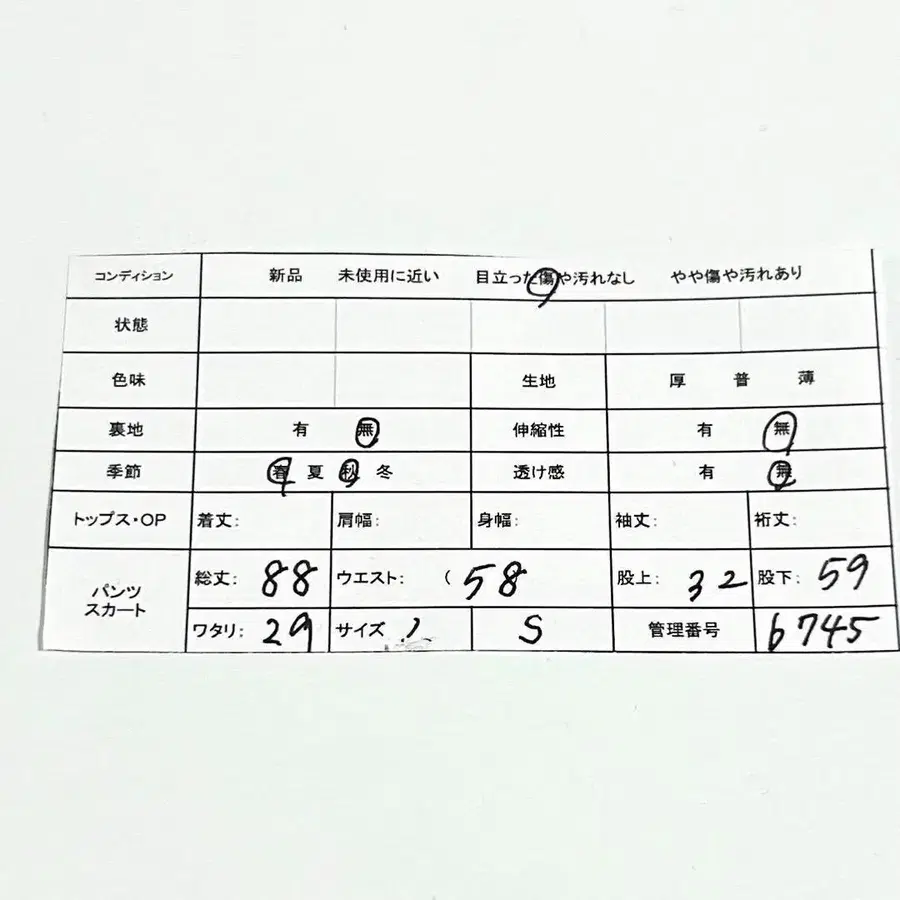 コンディション 新品 未使用に近い 目立った傷や汚れなし やや傷や汚れあり
状態
色味 生地 厚 普 薄
裏地 有 無 伸縮性 有 無
季節 春 夏 秋 冬 透け感 有 無
トップス・OP 着丈: 肩幅: 身幅: 袖丈: 裄丈:
パンツ スカート 総丈: 88 ウエスト: (58 股上: 32 股下: 59
ワタリ: 29 サイズ S 管理番号 6745